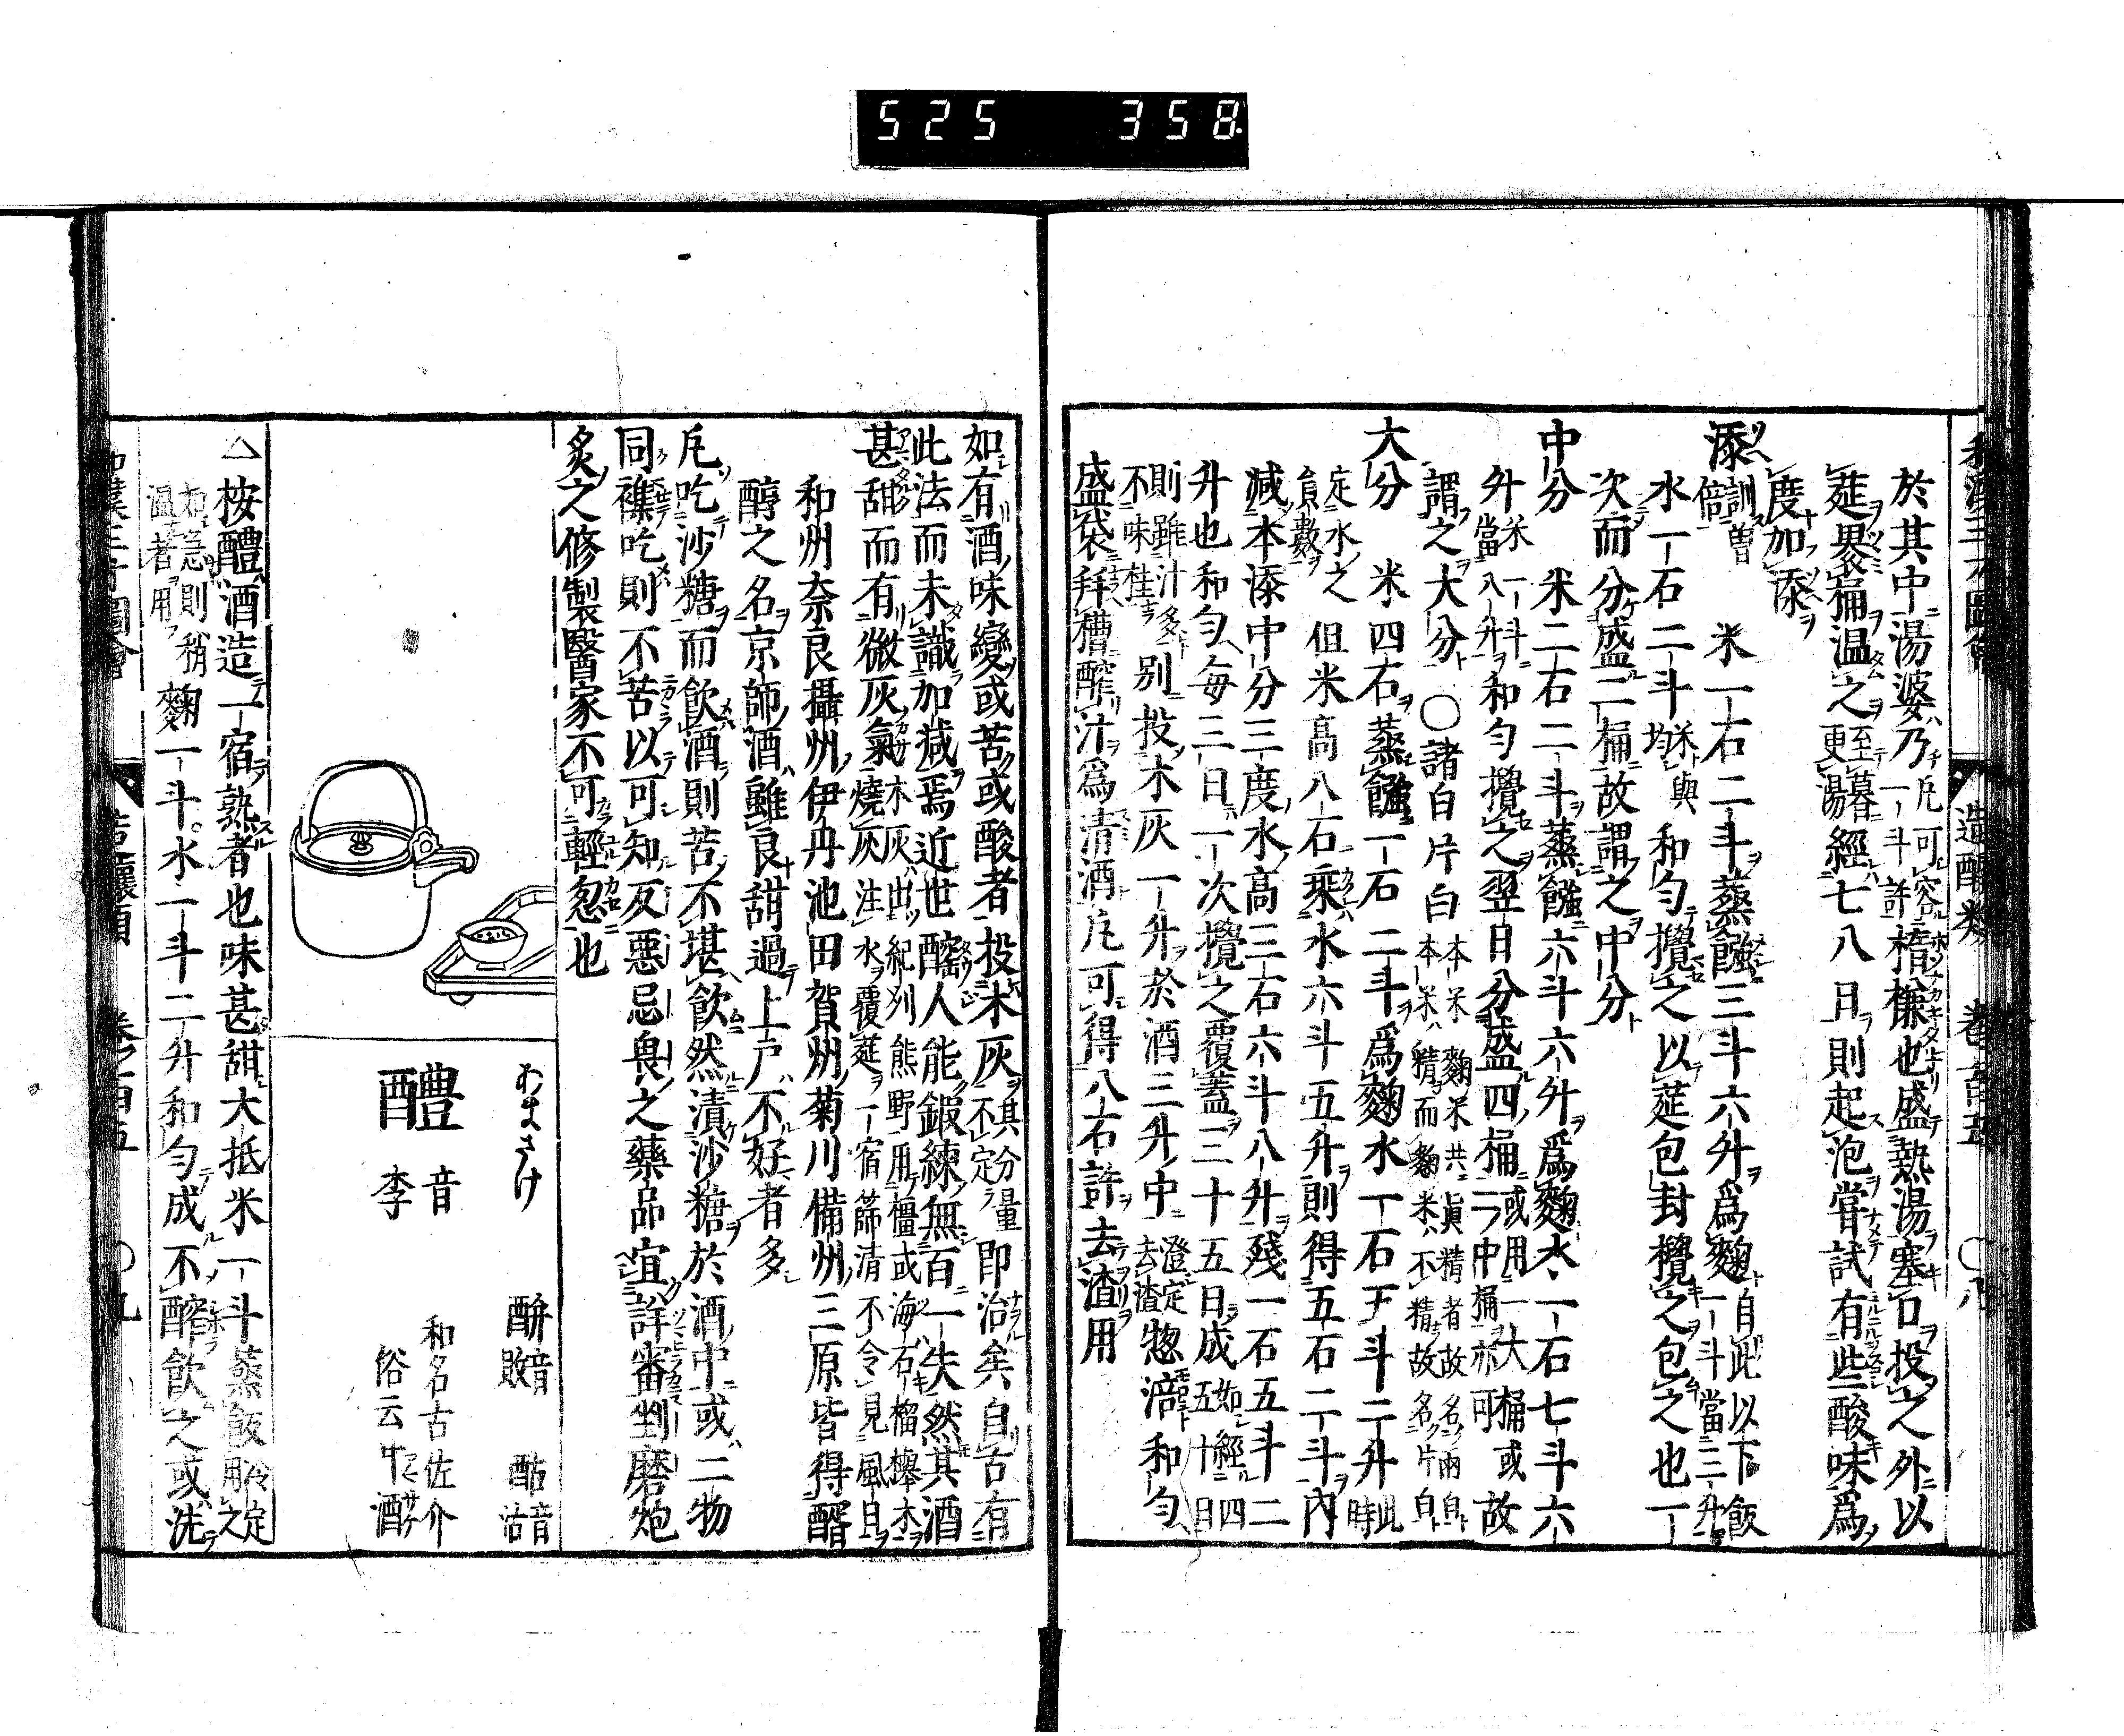 525 358
和漢三才圖會 造釀類 卷百五 ○八
於其中湯婆乃凡可容一斗許楕橡也盛熱湯塞口投之外以
莚裹桶温之至暮更湯經七八日則起泡當試有些酸味爲
度加添
添訓曽倍 米一石二斗蒸䭀三斗六升爲麹自此以下飯一斗當二升
水一石二斗米與均和勻攪之以莚包封攪之包之也一
次而分盛二桶故謂之中分
中分 米二石二斗蒸䭀六斗六升爲麹水一石七斗六
升米一斗當八升和勻攪之翌日分盛四桶或用一大桶或二中桶亦可故
謂之大分 ○諸白片白本米麹米共眞精者故名兩白本米精而麹米不精故名片白
大分 米四石蒸䭀一石二斗爲麹水一石下斗二升此時
定水之員數但米高八石乘水六斗五升則得五石二斗內
減本添中分三度水高三石六斗八升殘一石五斗二
升也和勻每三日一次攪之覆蓋三十五日成如經四五十日
則雖汁多不味佳別投木灰一升於酒三升中澄定去渣惣涪和勻
盛袋拜槽醡汁爲清酒凡可得八石許去渣用
如有酒味變或苦或酸者投木灰其分量不定即治矣自古有
此法而未識加減焉近世醸人能鍛練無百一失然其酒
甚甜而有微灰氣木灰出紀州熊野用橿或海石榴櫸木燒灰注水覆莚一宿篩清不令見風日
和州奈良攝州伊丹池田賀州菊川備州三原皆得醑
醇之名京師酒雖良甜過上戸不好者多
凡吃沙糖而飲酒則苦不堪飲然漬沙糖於酒中或二物
同襍吃則不苦以可知反惡忌畏之藥品宜詳審剉磨炮
炙之修製醫家不可輕忽也
あまさけ
醴 音李
醂音 酤音沽
和名古佐介
俗云甘酒
△按醴酒造一宿熟者也味甚甜大抵米一斗蒸飯冷定用之
如急則稍温者用麹一斗水一斗二升和勻成不醡飲之或洗
和漢三才圖會 造釀類 卷百五 ○九